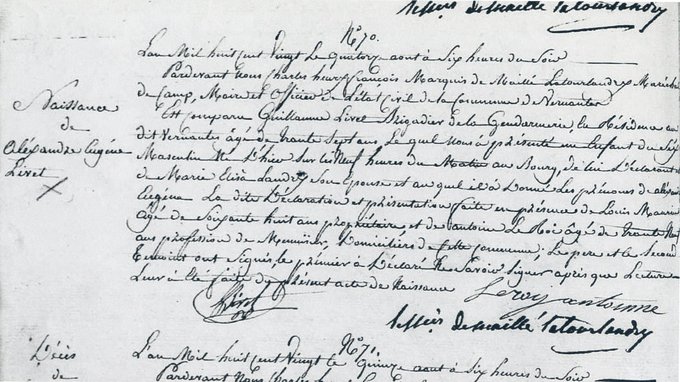 Le Ssrs Demaillé Latourlandry
N.° 70.
L'an Mil huit cent Vingt Le quatorze aout à Six heures du Soir
Pardevant Nous Charles henry François Marquis de Maillé Latourlandry Maréchal
de Camp, Maire et Officier de L'état Civil de la Commune de Vernantes
Est comparu Guillaume Livet Brigadier de la Gendarmerie, En Résidence au
dit Vernantes âgé de trente Sept ans Le quel Nous à présenté un Enfant du Sexe
Masculin Né L'hier Sur les Neuf heures du Matin au Bourg, de lui Déclarant
de Marie Elisa Landry Son Epouse et au quel il à Donné Les prénoms de alexandre
Eugène La dite Déclaration et présentation faite en présence de Louis
âgé de Soixante huit ans propriétaire, et de antoine Le Roi âgé de trente
ans profession de Meunier, Domiciliés de Cette Commune; Le pere et le Second
Temoint ont Signés Le premier à Déclaré Ne Savoir Signer après que Lecture
Leur à été faite du présent acte de Naissance
Naissance
de
Aléxandre Eugéne
Livet
Livet
Leroy antoinne
Le Ssrs Demaillé Latourlandry
N.° 71.
Décès
de
L'an Mil huit cent Vingt Le quinze aout à Six heures du Soir
Pardevant Nous Charles